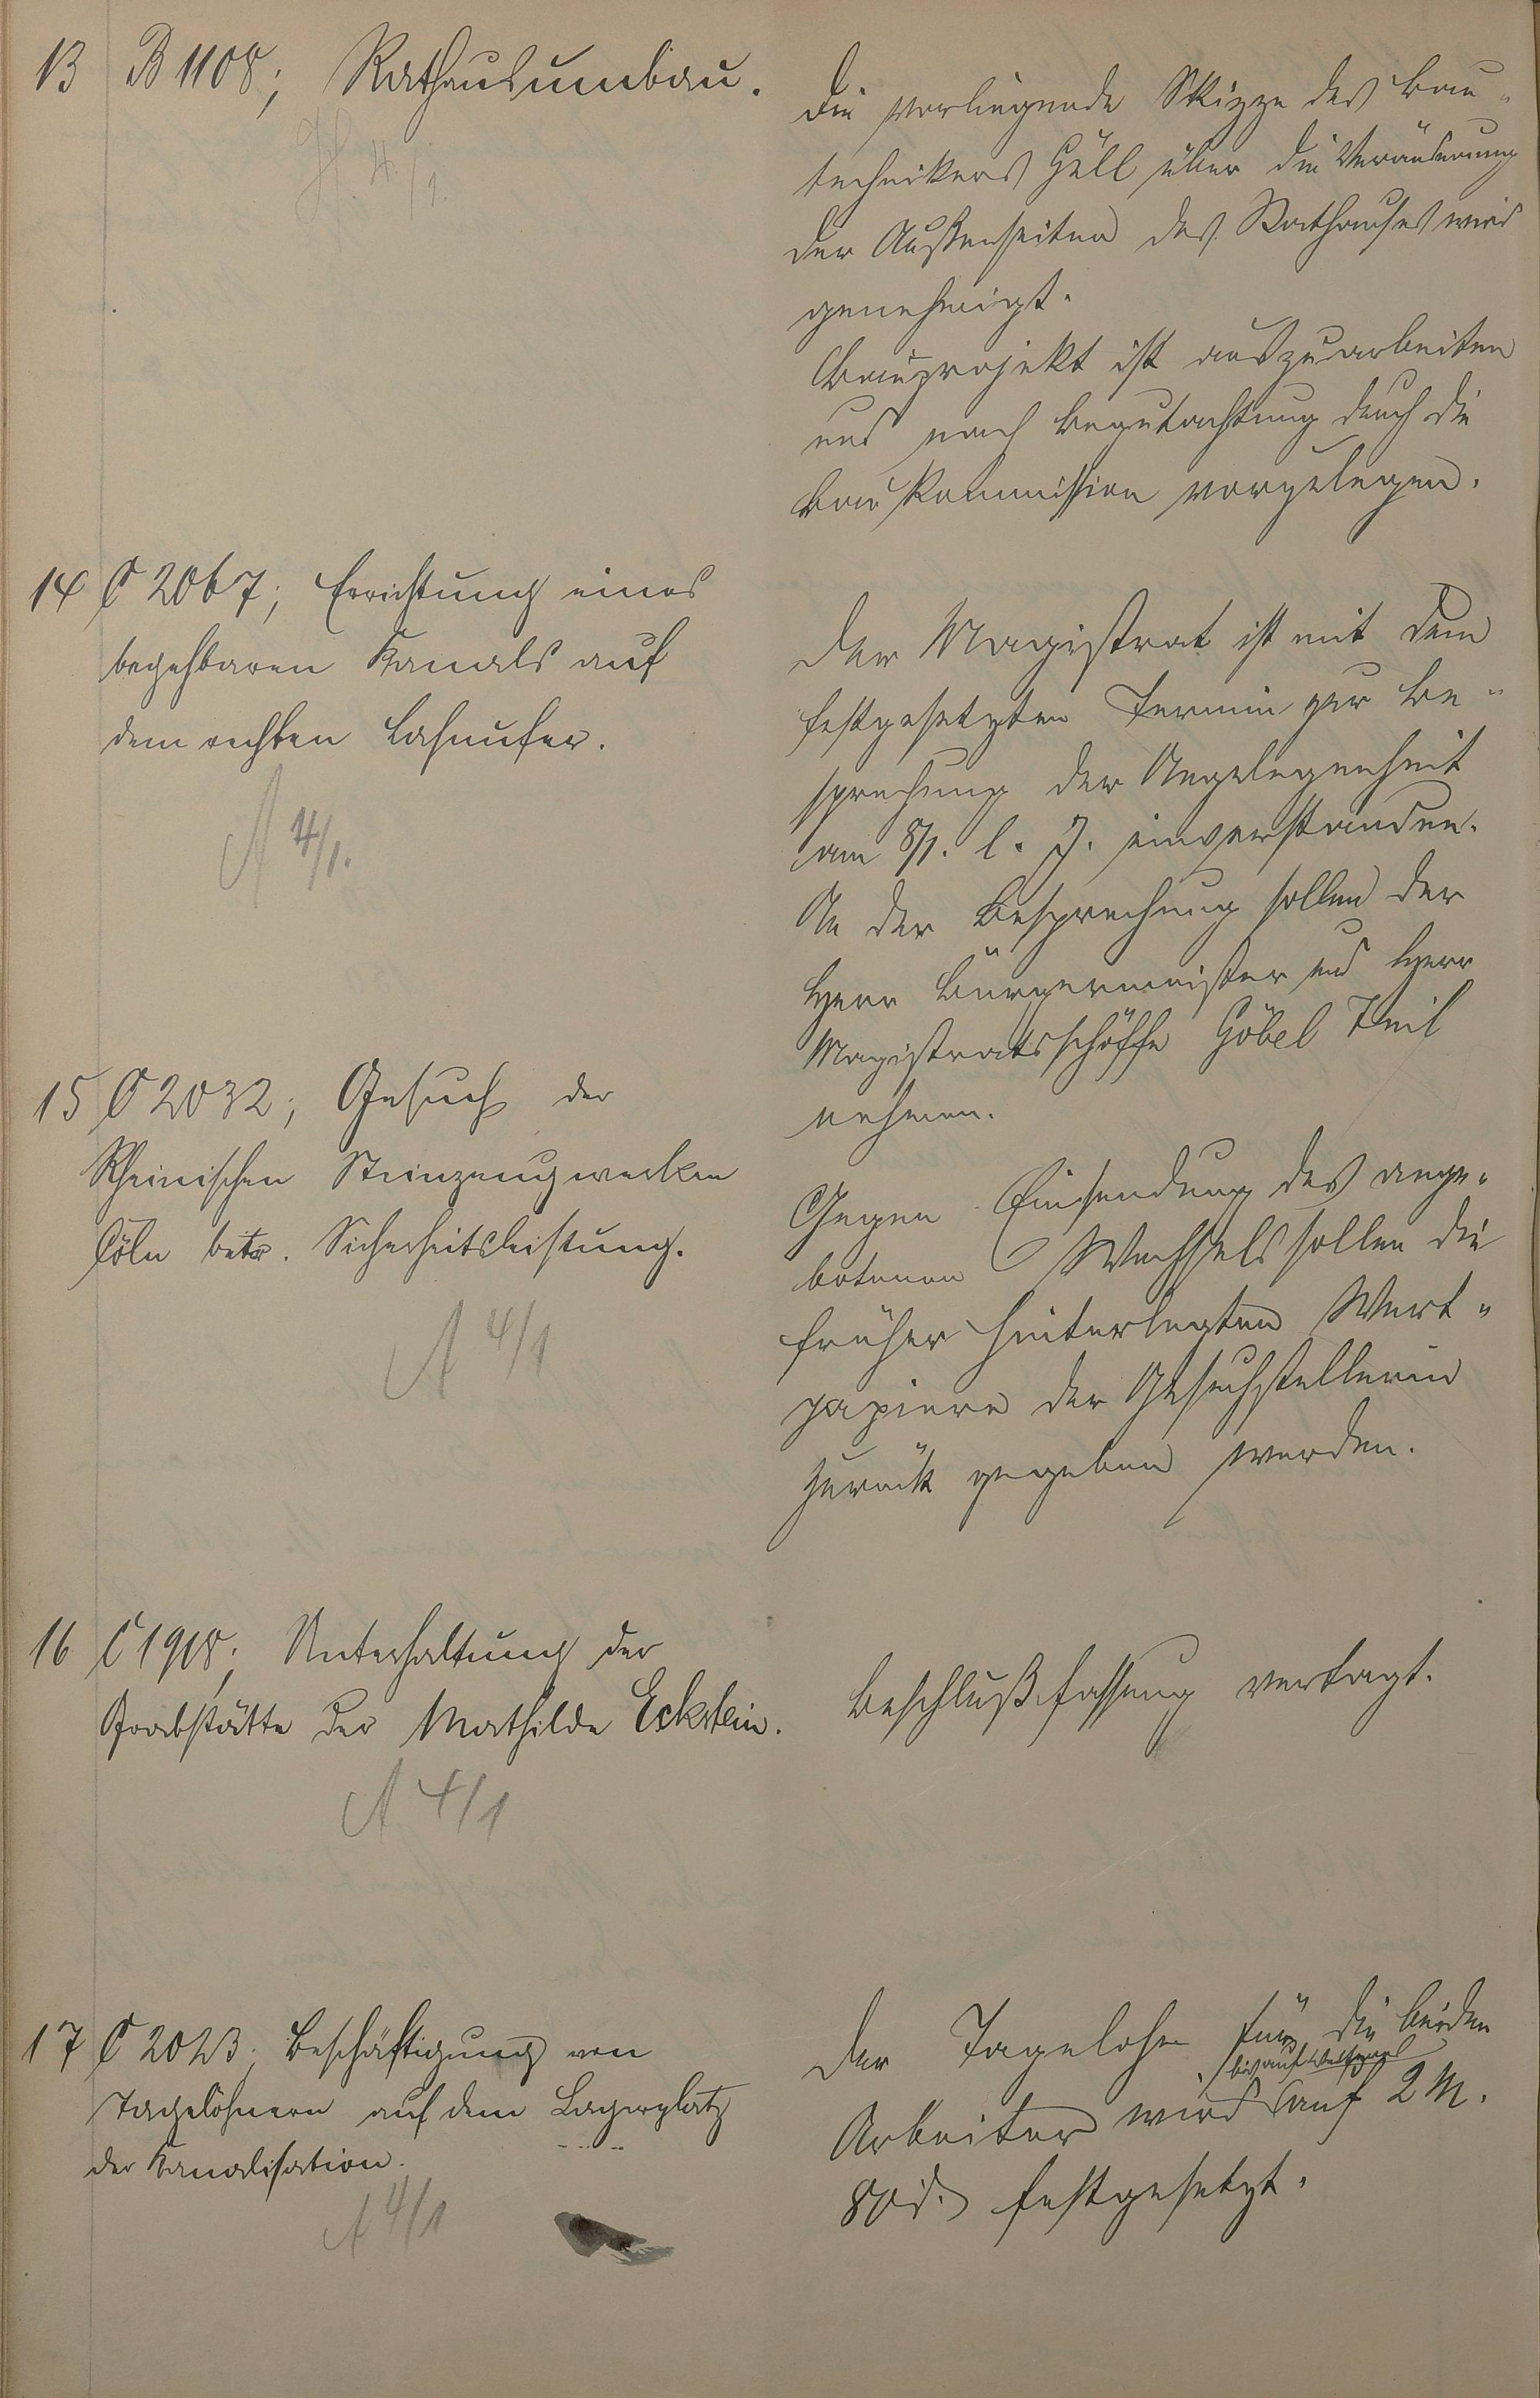 13 B 1108; Rathausumbau.
H. 4./1.
Die vorliegende Skizze des Bau-
technikers Göll über die Veränderung
der Außenseiten des Rathauses wird
genehmigt.
Bauprojekt ist auszuarbeiten
und nach Begutachtung durch die
Baukommission vorzulegen.
14 C 2067; Errichtung eines
begehbaren Kanals auf
dem rechten Lahnufer.
A 4/1.
Der Magistrat ist mit dem
festgesetzten Termin zur Be-
sprechung der Angelegenheit
am 8/1. l. J. einverstanden.
An der Besprechung sollen der
Herr Bürgermeister und Herr
Magistratsschöffe Göbel Teil
nehmen.
15 C 2032; Gesuch der
Rheinischen Steinzeugwerken
Cöln betr. Sicherheitsleistung.
A 4/1
Gegen Einsendung des ange-
botenen Wechsels sollen die
früher hinterlegten Wert-
papiere der Gesuchstellerin
zurück gegeben werden.
16 C 1918; Unterhaltung der
Grabstätte der Mathilde Eckstein.
A 4/1
Beschlußfassung vertagt.
17 C 2023. Beschäftigung von
Tagelöhnern auf dem Lagerplatz
der Kanalisation.
A 4/1
Der Tagelohn für die beiden
bis auf Weiteres
Arbeiter wird auf 2 M.
80 d. festgesetzt.